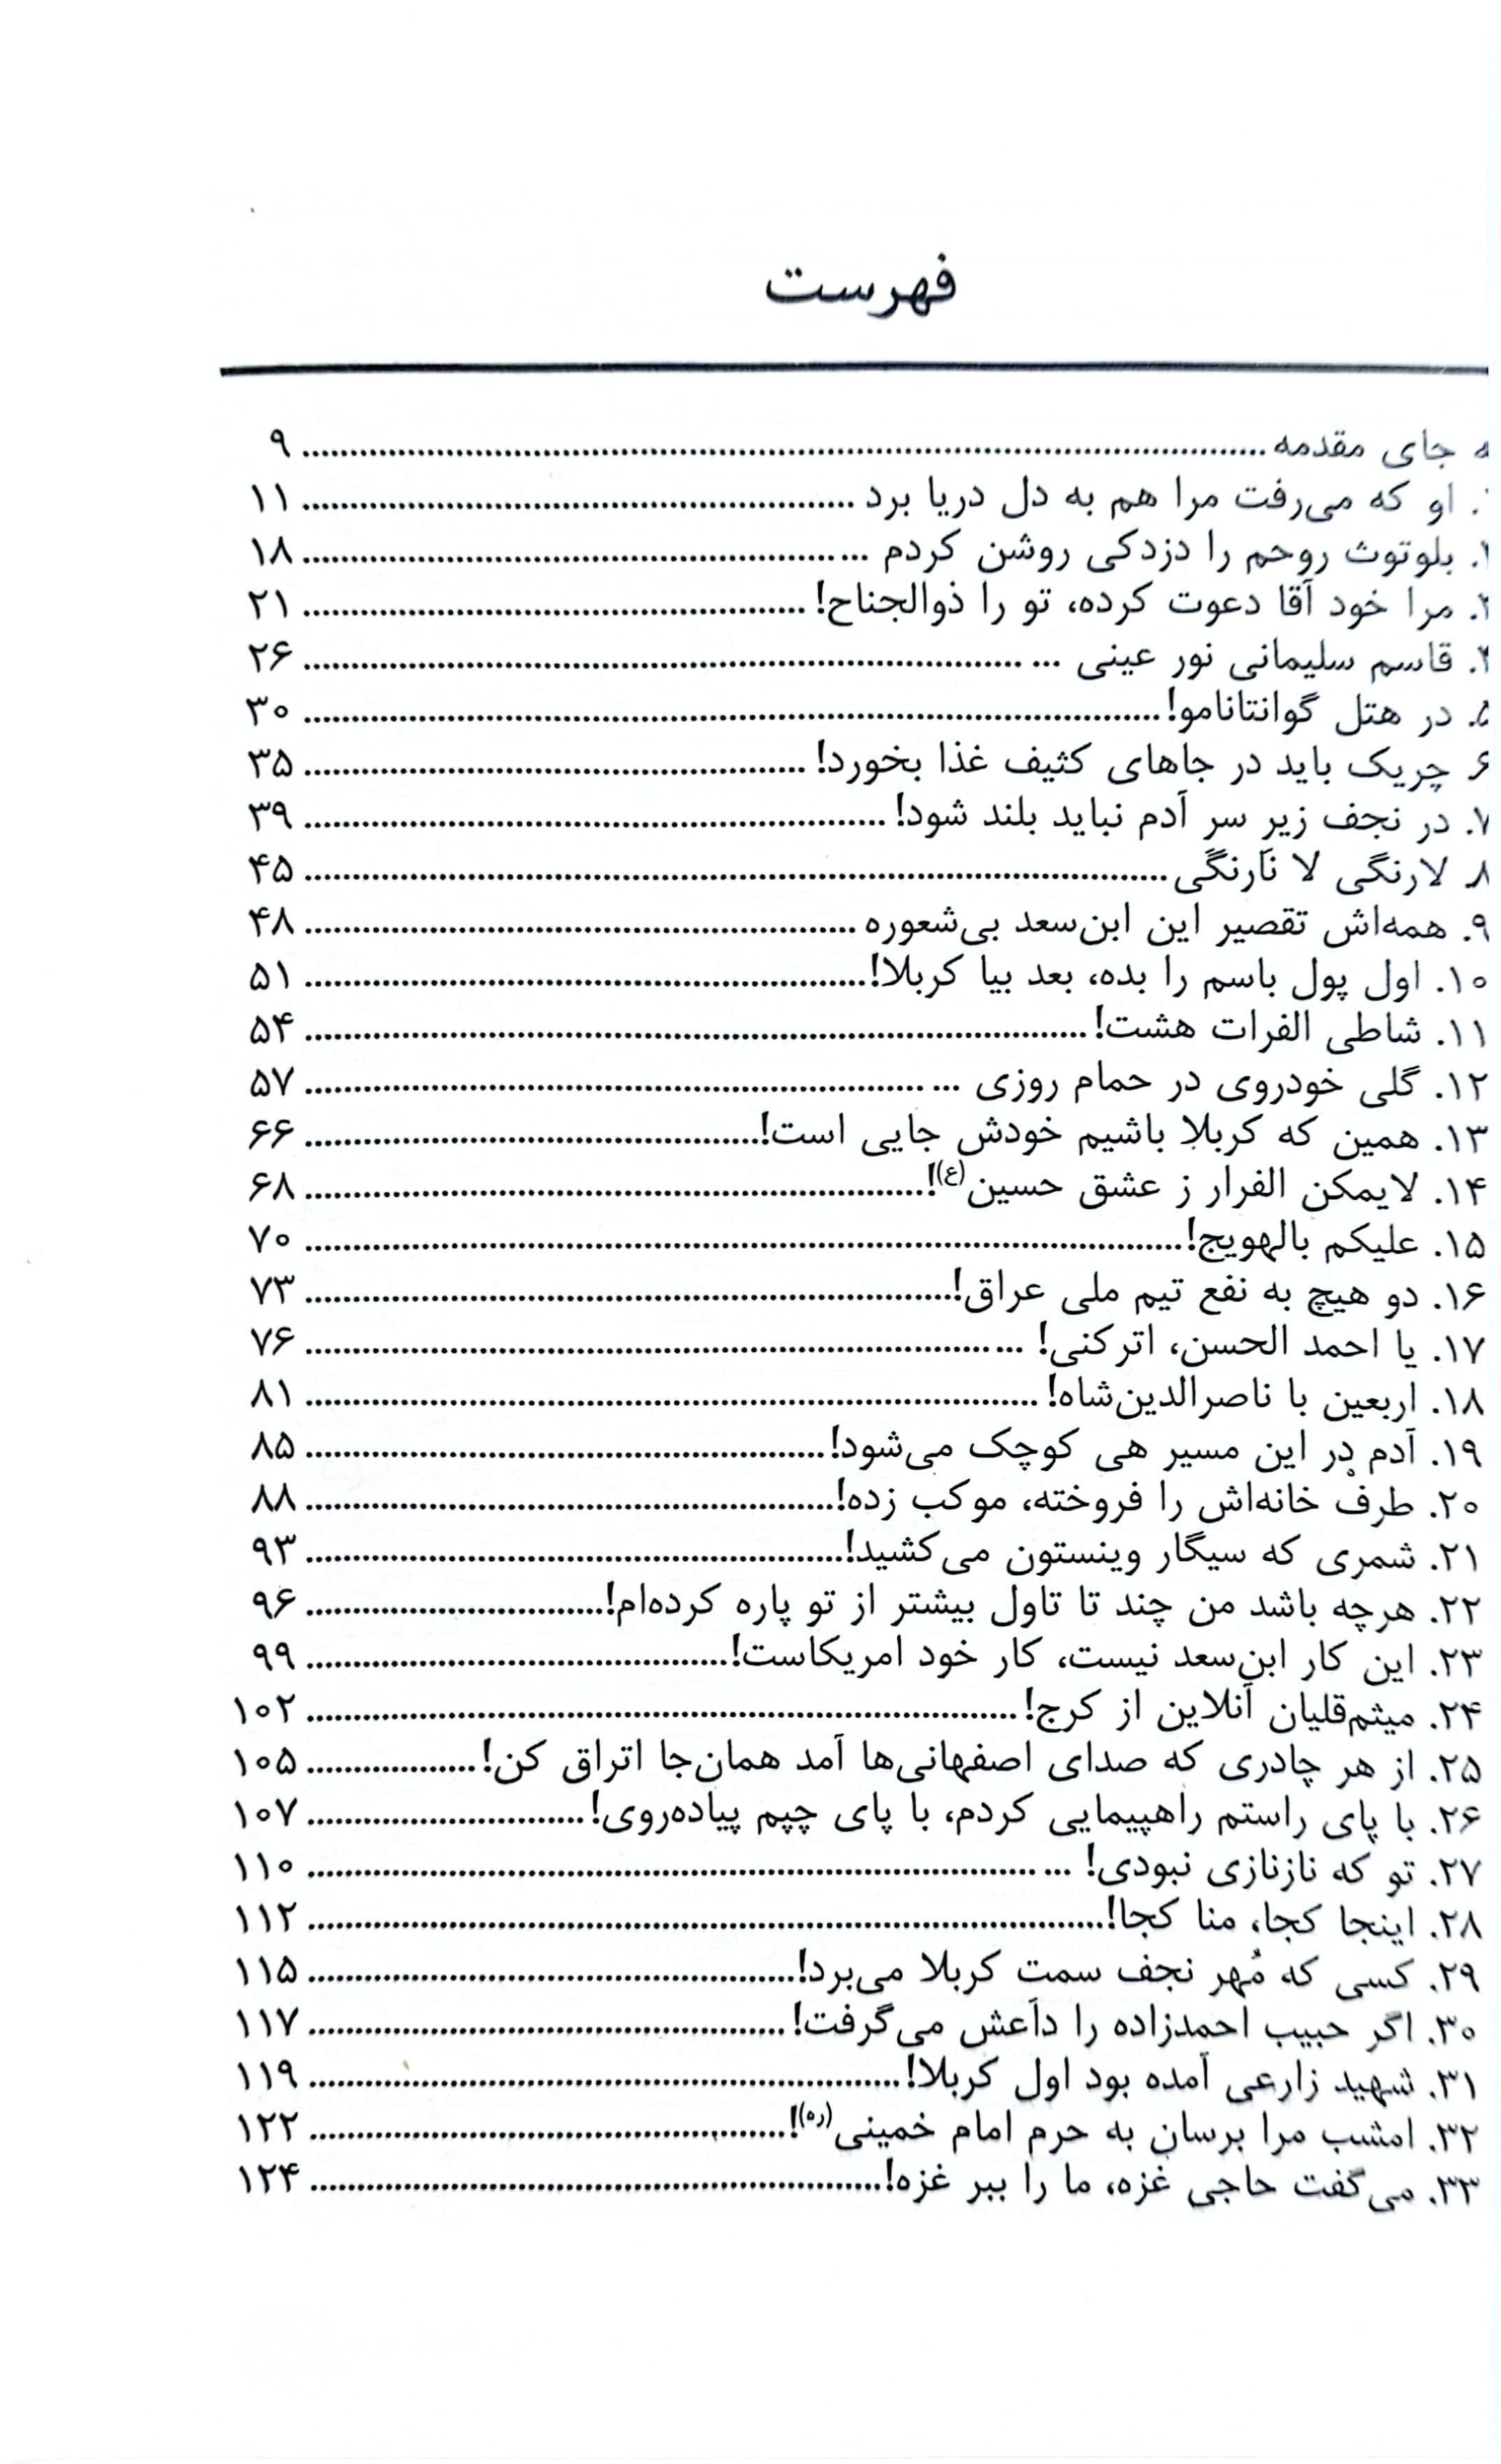 فهرست
جای مقدمه ........ ۹
. او که می‌رفت مرا هم به دل دریا برد ........ ۱۱
. بلوتوث روحم را دزدکی روشن کردم ........ ۱۸
. مرا خود آقا دعوت کرده، تو را ذوالجناح! ........ ۲۱
. قاسم سلیمانی نور عینی ... ........ ۲۶
۵. در هتل گوانتانامو! ........ ۳۰
۶ چریک باید در جاهای کثیف غذا بخورد! ........ ۳۵
۷. در نجف زیر سر آدم نباید بلند شود! ........ ۳۹
۸. لارنگی لا نارنگی ........ ۴۵
۹. همه‌اش تقصیر این ابن‌سعد بی‌شعوره ........ ۴۸
۱۰. اول پول باسم را بده، بعد بیا کربلا! ........ ۵۱
۱۱. شاطی الفرات هشت! ........ ۵۴
۱۲. گلی خودروی در حمام روزی ... ........ ۵۷
۱۳. همین که کربلا باشیم خودش جایی است! ........ ۶۶
۱۴. لایمکن الفرار ز عشق حسین(ع)! ........ ۶۸
۱۵. علیکم بالهویج! ........ ۷۰
۱۶. دو هیچ به نفع تیم ملی عراق! ........ ۷۳
۱۷. یا احمد الحسن، اترکنی! ... ........ ۷۶
۱۸. اربعین با ناصرالدین‌شاه! ........ ۸۱
۱۹. آدم در این مسیر هی کوچک می‌شود! ........ ۸۵
۲۰. طرفْ خانه‌اش را فروخته، موکب زده! ........ ۸۸
۲۱. شمری که سیگار وینستون می‌کشید! ........ ۹۳
۲۲. هرچه باشد من چند تا تاول بیشتر از تو پاره کرده‌ام! ........ ۹۶
۲۳. این کار ابن‌سعد نیست، کار خود امریکاست! ........ ۹۹
۲۴. میثم‌قلیان آنلاین از کرج! ........ ۱۰۲
۲۵. از هر چادری که صدای اصفهانی‌ها آمد همان‌جا اتراق کن! ........ ۱۰۵
۲۶. با پای راستم راهپیمایی کردم، با پای چپم پیاده‌روی! ........ ۱۰۷
۲۷. تو که نازنازی نبودی! ... ........ ۱۱۰
۲۸. اینجا کجا، منا کجا! ........ ۱۱۲
۲۹. کسی که مُهر نجف سمت کربلا می‌برد! ........ ۱۱۵
۳۰. اگر حبیب احمدزاده را داعش می‌گرفت! ........ ۱۱۷
۳۱. شهید زارعی آمده بود اول کربلا! ........ ۱۱۹
۳۲. امشب مرا برسان به حرم امام خمینی(ره)! ........ ۱۲۲
۳۳. می‌گفت حاجی غزه، ما را ببر غزه! ........ ۱۲۴